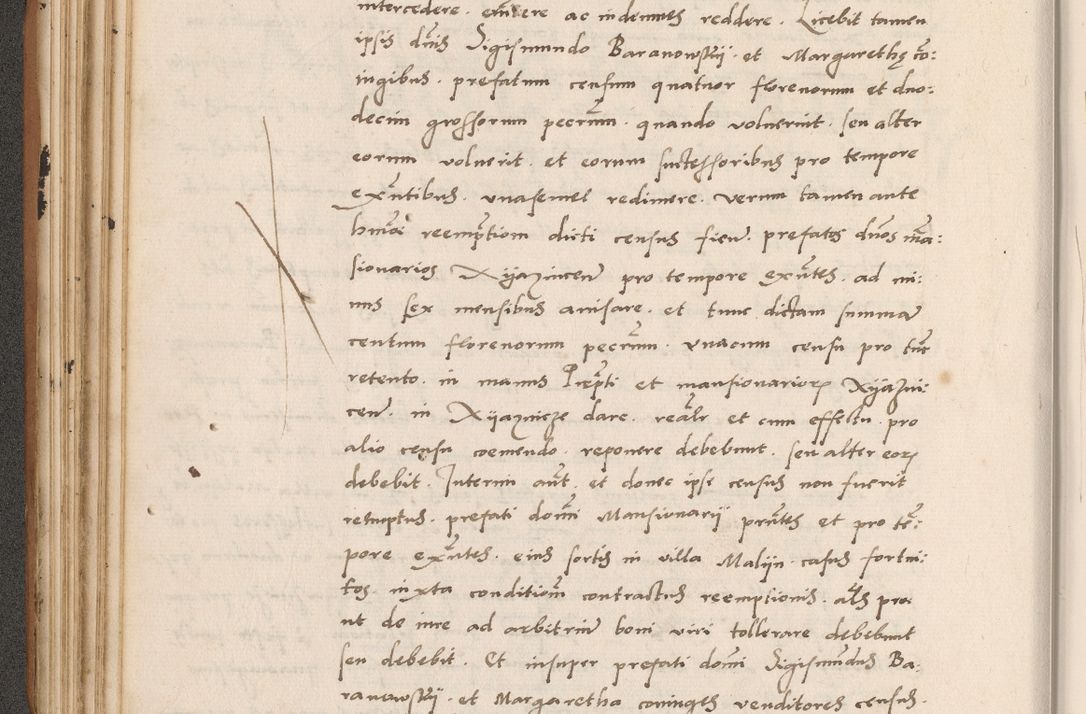 intercedere. eruere ac indemnes reddere. Licebit tamen
ipsis dnis Sigismundo Baranowskij. et Margarethę co:
iugibus. prefatum censum quatuor florenorum et duo:
decim grossorum pecun. quando voluerint. seu alter
eorum voluerit. et eorum successoribus pro tempore
exntibus. vnasemel redimere. verum tamen ante
hmoi reemptiom dicti census fien. prefatos dnos ma:
sionarios Xijazincen pro tempore exntes. ad mi:
nus sex mensibus auisare. et tunc dictam summa
centum florenorum pecum. vnacum censu pro tuc
retento. in manus Prepti et mansionarior Xijazni:
cen. in Xijaznicze dare. realr et cum effectu. pro
alio censu coemendo. reponere debebunt. seu alter eor
debebit. Interim aut. et donec ipse census non fuerit
remptus. prefati domi Mansionarij prntes et pro te:
pore exntes. eius sortis in villa Malijn. casus fortui:
tos. iuxta conditiom contractus reemptionis. als pro
ut de iure ad arbitriu boni viri tollerare debebunt
seu debebit. Et insuper prefati domi Sigismundus Ba:
ranowskij. et Margaretha coniuges venditores census.